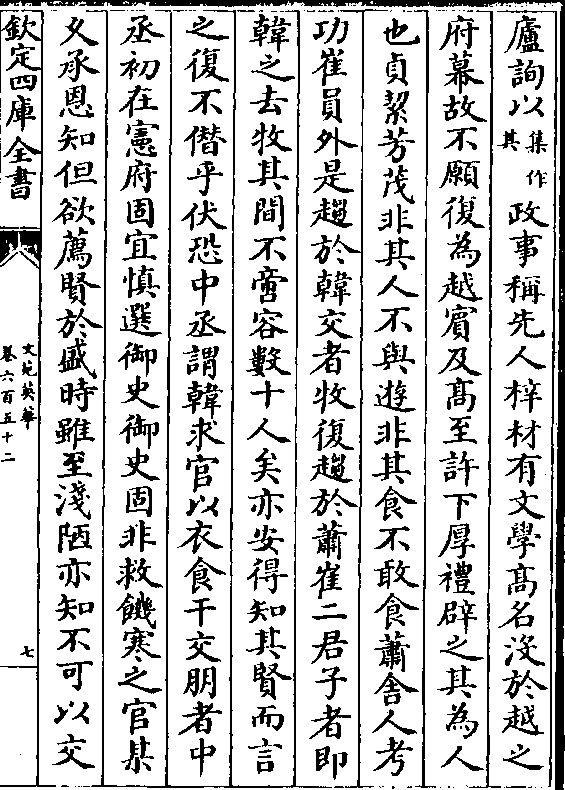 廬詢以集作其政事稱先人梓材有文學髙名没於越之
府幕故不願復為越賓及髙至許下厚禮辟之其為人
也貞絜芳茂非其人不與遊非其食不敢食蕭舍人考
功崔員外是趨於韓交者牧復趨於蕭崔二君子者即
韓之去牧其間不啻容數十人矣亦安得知其賢而言
之復不僭乎伏恐中丞謂韓求官以衣食干交朋者中
丞初在憲府固宜慎選御史御史固非救饑寒之官某
久承恩知但欲薦賢於盛時雖至淺陋亦知不可以交
欽定四庫全書
文苑英華
卷六百五十二
七